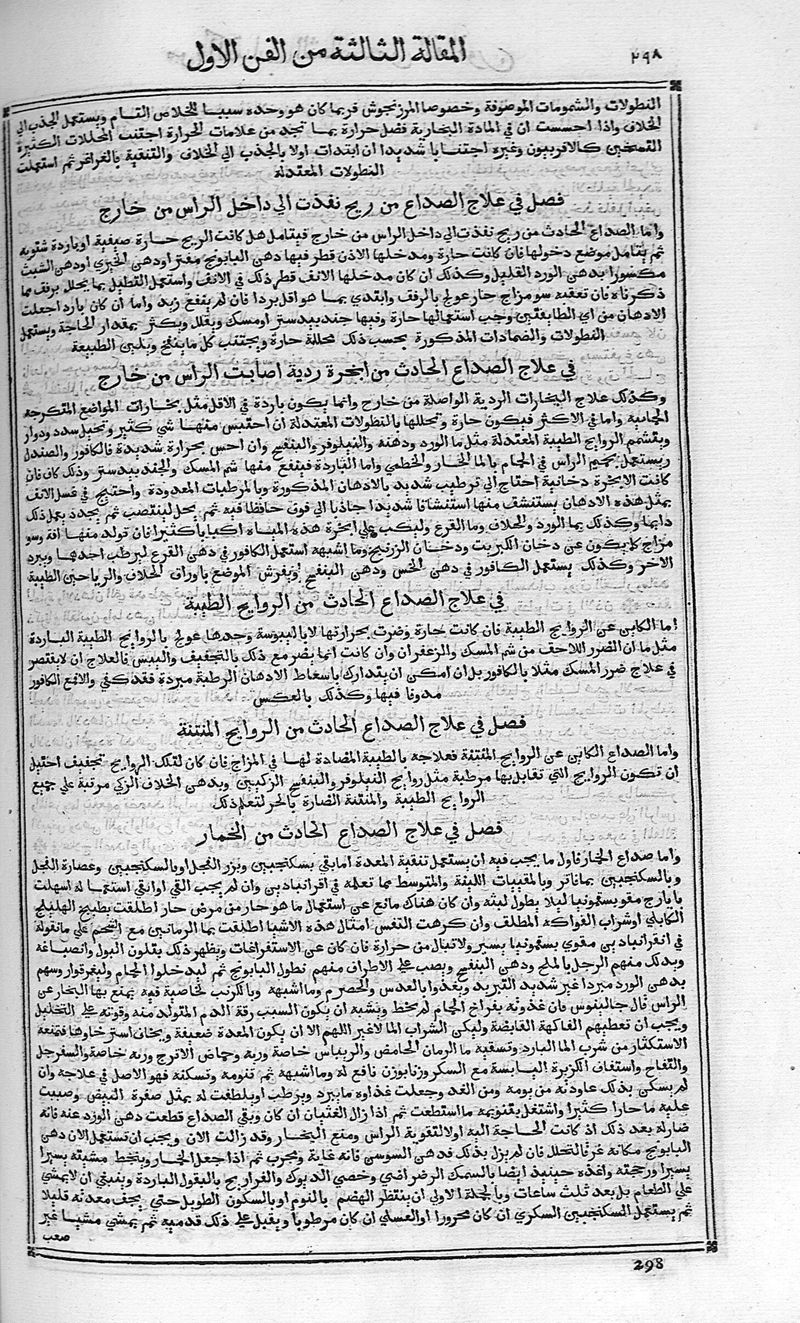 المقالة الثالثة من الفن الاول
٢٩٨
النطولات والشمومات الموصوفة وخصوصا المرزنجوش فربما كان هو وحده سببا للخلاص التام ويستعمل الجذب الى
الخلاف واذا احسست ان في المادة البخارية فضل حرارة بما تجد من علامات الحرارة اجتنب المحللات الكثيرة
التسخين كالافربيون وغيره اجتنابا شديدا ان ابتدات اولا بالجذب الى الخلاف والتنقية بالغراغر ثم استعملت
النطولات المعتدلة
فصل في علاج الصداع من ريح نفذت الى داخل الراس من خارج
واما الصداع الحادث من ريح نفذت الى داخل الراس من خارج فيتامل هل كانت الريح حارة صيفية او باردة شتوية
ثم يتامل موضع دخولها فان كانت حارة ومدخلها الاذن قطر فيها دهن البابونج مفترا ودهن الخيري او دهن الشبث
مكسورا بدهن الورد القليل وكذلك ان كان مدخلها الانف قطر ذلك في الانف واستعمل القليل بما يحلل برفق مما
ذكرناه فان تعقبه سو مزاج حار عولج بالرفق وابتدي بما هو اقل بردا فان لم ينفع زيد واما ان كان بارد اجعلت
الادهان من اي الطايفتين وجب استعمالها حارة وفيها جندبيدستر او مسك ويقلل ويكثر بمقدار الحاجة ويستعمل
النطولات والضمادات المذكورة بحسب ذلك محللة حارة ويجتنب كل ما ينفخ ويلين الطبيعة
في علاج الصداع الحادث من ابخرة ردية اصابت الراس من خارج
وكذلك علاج البخارات الردية الواصلة من خارج وانما يكون باردة في الاقل مثل بخارات المواضع المتكرجة
الجمامية واما في الاكثر فيكون حارة وتحللها بالنطولات المعتدلة ان احتبس منها شي كثير وتخيل سدد ودوار
ويشمم الروايح الطيبة المعتدلة مثل ما الورد ودهنه والنيلوفر والبنفسج وان احس بحرارة شديدة فالكافور والصندل
ويستعمل تحميم الراس في الحمام بالما الحار والخطمي واما الباردة فينفع منها شم المسك والجندبيدستر وذلك كان فان
كانت الابخرة دخانية احتاج الى ترطيب شديد بالادهان المذكورة وبالمرطبات المعدودة واحتيج في غسل الانف
بمثل هذه الادهان يستنشف منها استنشاقا شديدا جاذبا الى فوق حافظا فيه ثم يحل لينتصب ثم يجدد يعمل ذلك
دايما وكذلك بما الورد والخلاف وما القرع وليكب على ابخرة هذه المياه اكبابا كثيرا فان تولد منها افة وسو
مزاج كما يكون عن دخان الكبريت ودخان الزرنيخ وما اشبهه استعمل الكافور في دهن القرع ليرطب احدها ويبرد
الاخر وكذلك يستعمل الكافور في دهن الخس ودهن البنفسج ويفرش الموضع باوراق الخلاف والرياحين الطيبة
في علاج الصداع الحادث من الروايح الطيبة
اما الكاين عن الروايح الطيبة فان كانت حارة وضرت بحرارتها لا باليبوسة وحدها عولج بالروايح الطيبة الباردة
مثل ما ان الضرر اللاحف من شم المسك والزعفران وان كانت انما يضر مع ذلك بالتجفيف واليبس فالعلاج ان لا يقتصر
في علاج ضرر المسك مثلا بالكافور بل ان امكن ان يتدارك باسعاط الادهان الرطبة مبردة فقد كفي والافع الكافور
مدوفا فيها وكذلك بالعكس
فصل في علاج الصداع الحادث من الروايح المنتنة
واما الصداع الكاين عن الروايح المنتنة فعلاجه بالطيبة المضادة لها في المزاج فان كان لتلك الروايح تجفيف احتيل
ان تكون الروايح التي تقابل بها مرطبة مثل روايح النيلوفر والبنفسج الزكيين وبدهن الخلاف الزكي مرتبة على جميع
الروايح الطيبة والمنتنة الضارة بالحر لتعلم ذلك
فصل في علاج الصداع الحادث من الخمار
واما صداع الخمار فاول ما يجب فيه ان يستعمل تنقية المعدة اما بقي بسكنجبين وبزر الفجل او بالسكنجبين وعصارة الفجل
وبالسكنجبين بما فاتر وبالمقييات اللينة والمتوسط مما تعلمه في اقراباذين وان لم يجب القي او ابقي استعماله اسهلت
بايارج مقو بسقمونيا ليلا يطول لبثه وان كان هناك مانع عن استعمال ما هو حار من مرض حار اطلقت بطبيخ الهليلج
الكابلي او شراب الفواكه المطلف وان كرهت النفس امثال هذه الاشيا اطلقت بما الرمانين مع الشحم على ما نقوله
في اقراباذين مقوي بسقمونيا يسير ولا تبال من حرارة فان كان عن الاستفراغات ويظهر ذلك بتلون البول وانصباغه
ويدلك منهم الرجل بالملح ودهن البنفسج ويصب على الاطراف منهم نطول البابونج ثم ليدخلوا الحمام وليغرقوا روسهم
بدهن الورد مبردا غير شديد التبريد ويغذوا بالعدس والحصرم وما اشبهه وبالكرنب لخاصية فيه يمنع بها البخار عن
الراس قال جالينوس فان غذوته بفراخ الحمام لم يخط ويشبه ان يكون السبب رقة الدم المتولد منه وقوته على التحليل
ويجب ان تعطيهم الفاكهة القابضة وليكن الشراب الما لا غير اللهم الا ان يكون المعدة ضعيفة ويخاف استرخاوها فتمنعه
الاستكثار من شرب الما البارد وتسقيه ما الرمان الحامض والريباس خاصة وربه وحماض الاترج وربه خاصة والسفرجل
والتفاح واستفاف الكزبرة اليابسة مع السكر وزنا بوزن نافع له وما اشبهه ثم تنومه وتسكنه فهو الاصل في علاجه وان
لم يسكن بذلك عاودته من يومه ومن الغد وجعلت غذاوه ما يبرد ويرطب او يلطفت له بمثل صفرة البيض وصببت
عليه ما حارا كثيرا واشتغل بتنويمه ما استطعت ثم اذا زال الغثيان ان كان وبقي الصداع قطعت دهن الورد عنه فانه
ضار له بعد ذلك اذ كانت الحاجة اليه اولا لتقوية الراس ومنع البخار وقد زالت الان ويجب ان تستعمل الان دهن
البابونج مكانه غرقا لتحلل فان لم يزل بذلك فدهن السوسن فانه غاية ومجرب ثم اذا جعل الخمار ويخط مشيته يسيرا
يسيرا ورجحته واغذه حينيذ ايضا بالسمك الرضراضي وخصي الديوك والفراريج بالبقول الباردة وينبغي ان لا يمشي
على الطعام بل بعد ثلث ساعات وبالجملة الاولى ان ينتظر الهضم بالنوم او بالسكون الطويل حتي يجف معدته قليلا
ثم يستعمل السكنجبين السكري ان كان محرورا او العسلي ان كان مرطوبا ويقبل على ذلك قدميه ثم يمشي مشيا غير
صعب
298